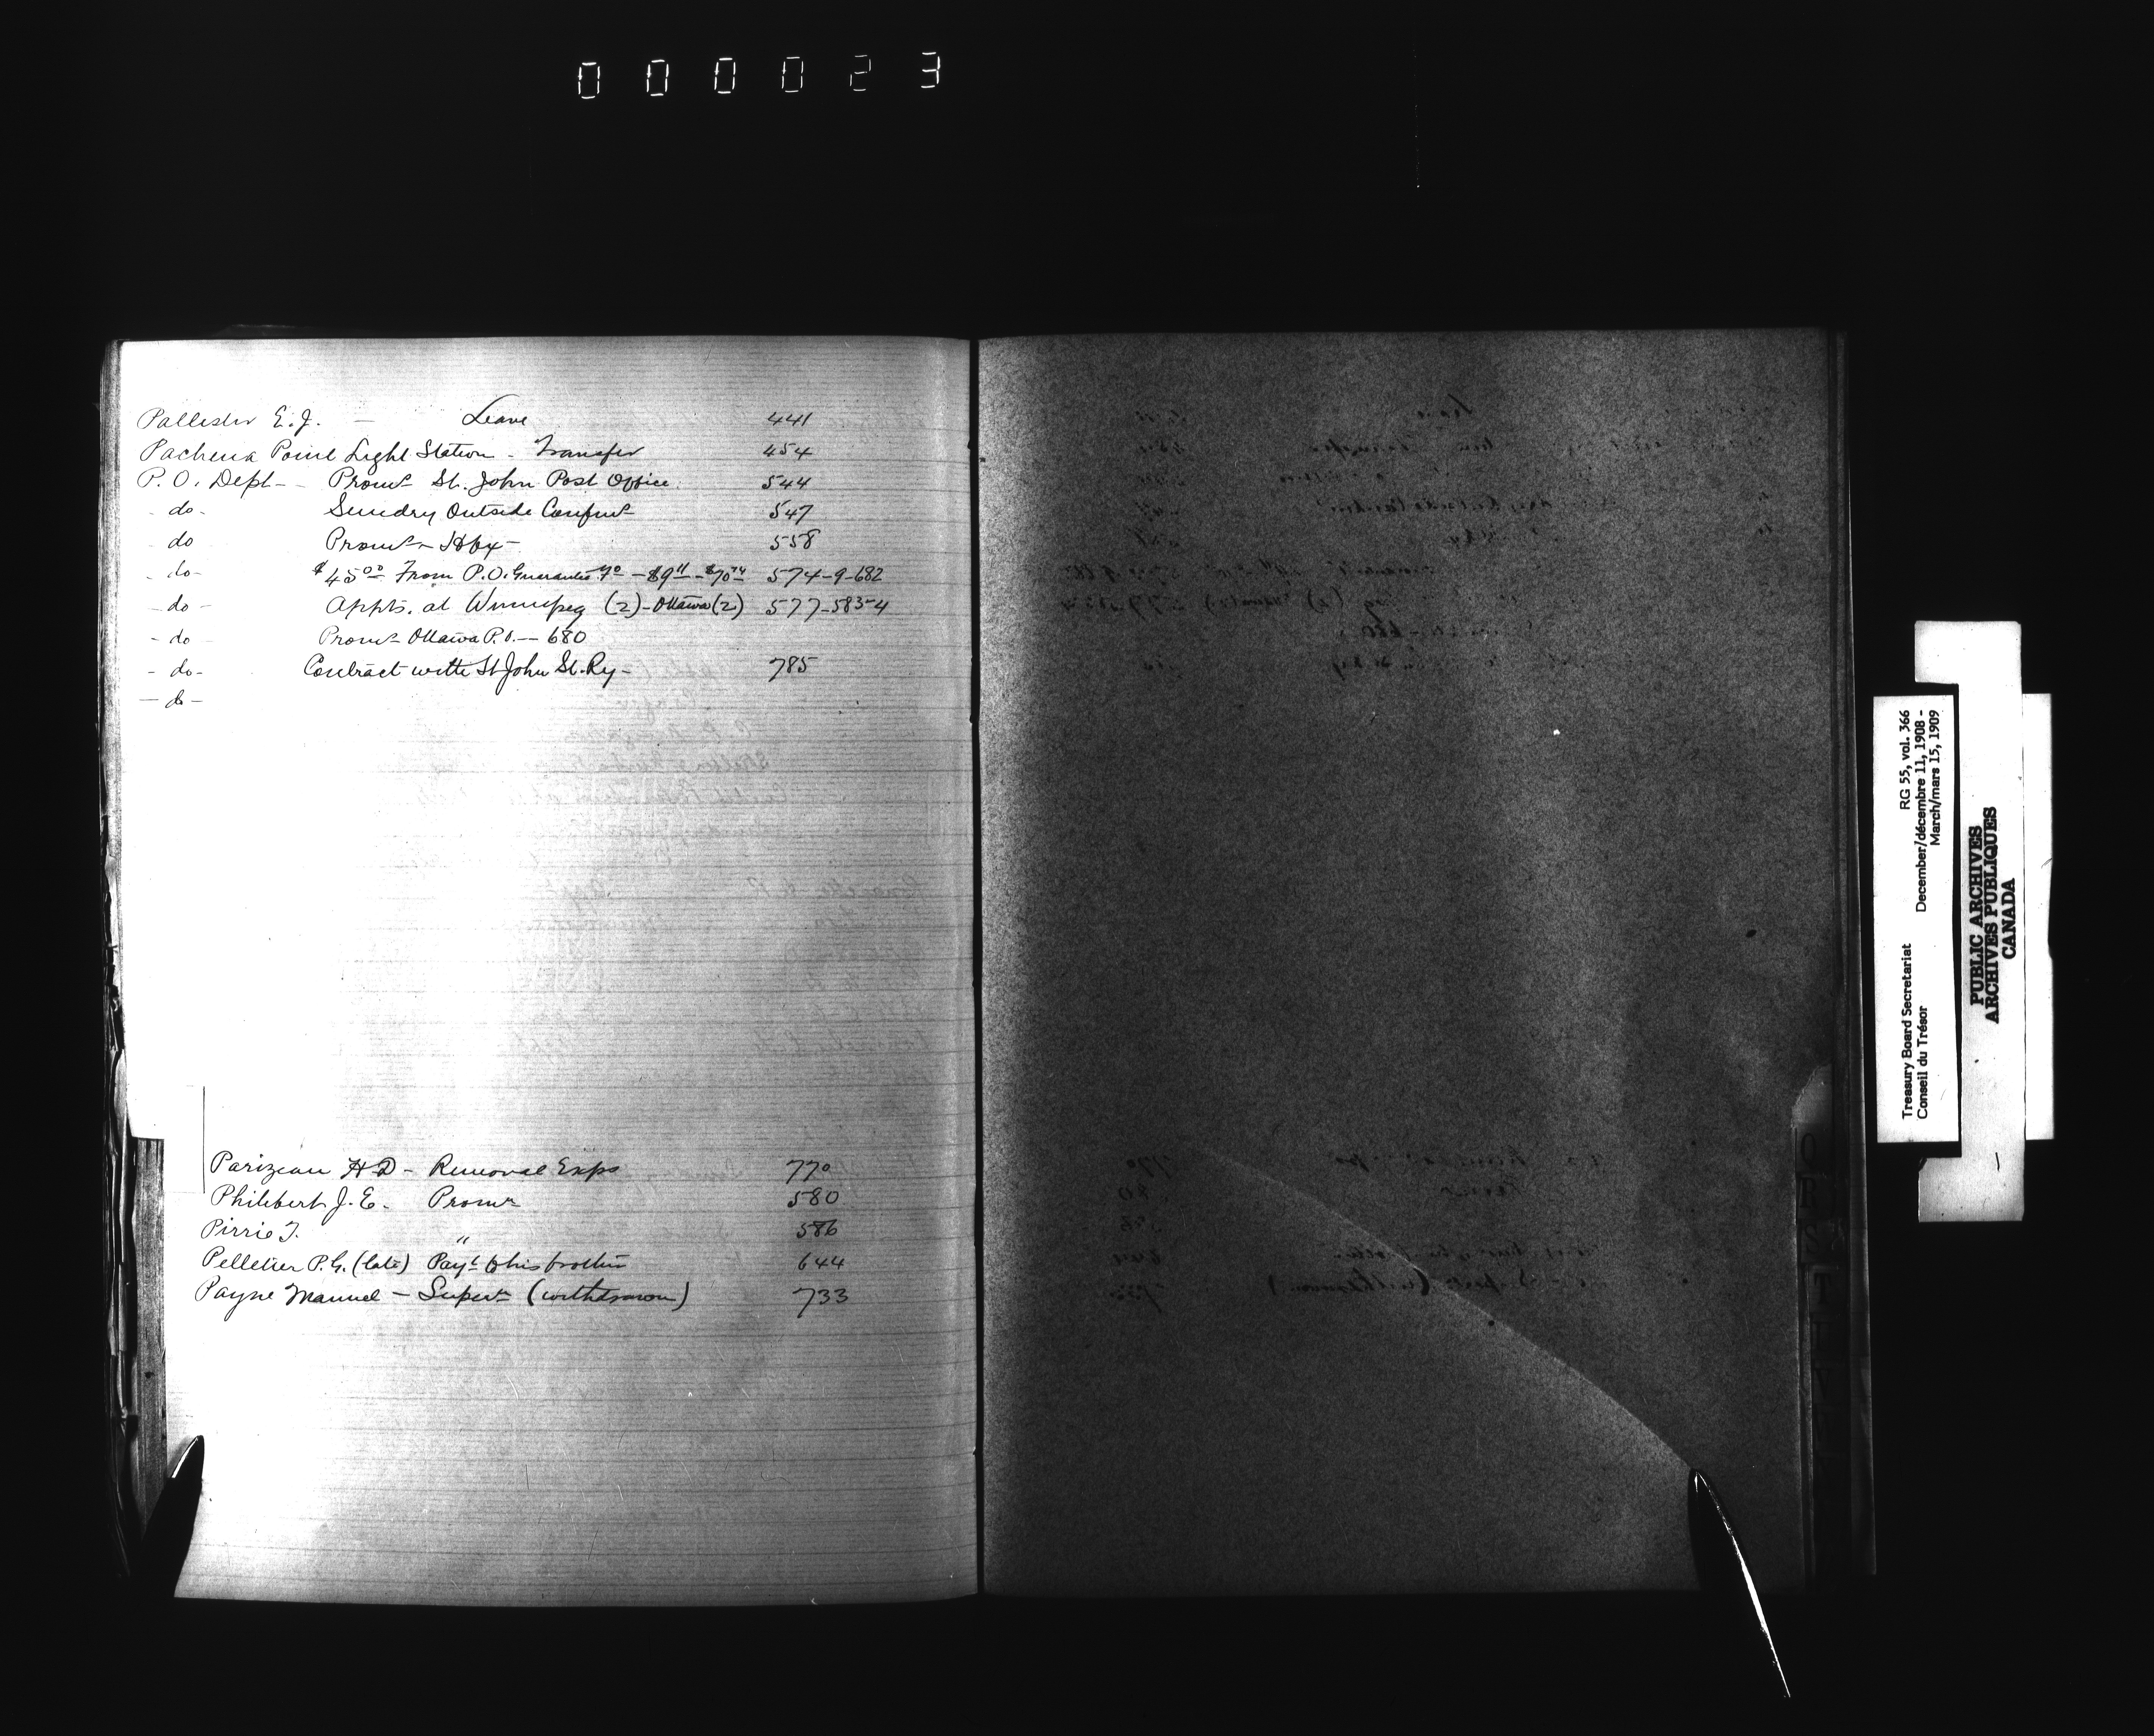 000023
Pallister E. J. — Leave 441
Pachena Point Light Station - Transfer 454
P. O. Dept - Promn St. John Post Office 544
- do - Sundry Outside 547
do Promn - Hfx - 558
- do - $45.00 From P.O. Guarantee - $9 - $70 574-9-682
- do - Appts. at Winnipeg (2) - Ottawa (2) 577-583-4
- do Promn Ottawa P.O. — 680
- do - Contract with St John St. Ry - 785
— do —
Parizeau H D - Removal Exps 770
Philibert J. E. Promn 580
Pirrie T. " 586
Pelletier P. G. (late) Payt to his brother 644
Payne Manuel - Supern (withdrawn) 733
Treasury Board Secretariat RG 55, vol. 366
Conseil du Trésor December/décembre 11, 1908 -
March/mars 15, 1909
PUBLIC ARCHIVES
ARCHIVES PUBLIQUES
CANADA
Q
R
S
T